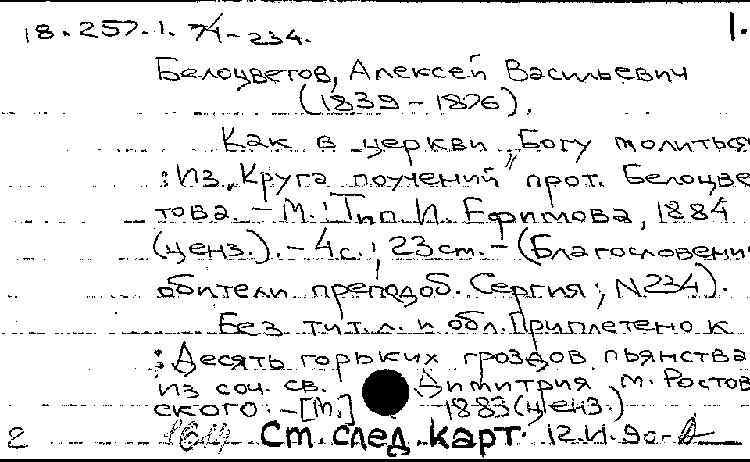 18.257.1. 74-234. 1.
Белоцветов, Алексей Васильевич
(1839-1876).
Как в церкви Богу молиться
: Из "Круга поучений" прот. Белоцве
това. - М.: Тип И. Ефимова, 1884
(ценз.). - 4с.; 23см. - (Благословени
обители преподоб. Сергия; N234).
Без тит. л. и обл. Приплетено к
: Десять горьких гроздов пьянства
из соч. св. Димитрия м. Ростов
ского. - [М.] 1883 (ценз.)
2 См. след. карт. 12.VI.90